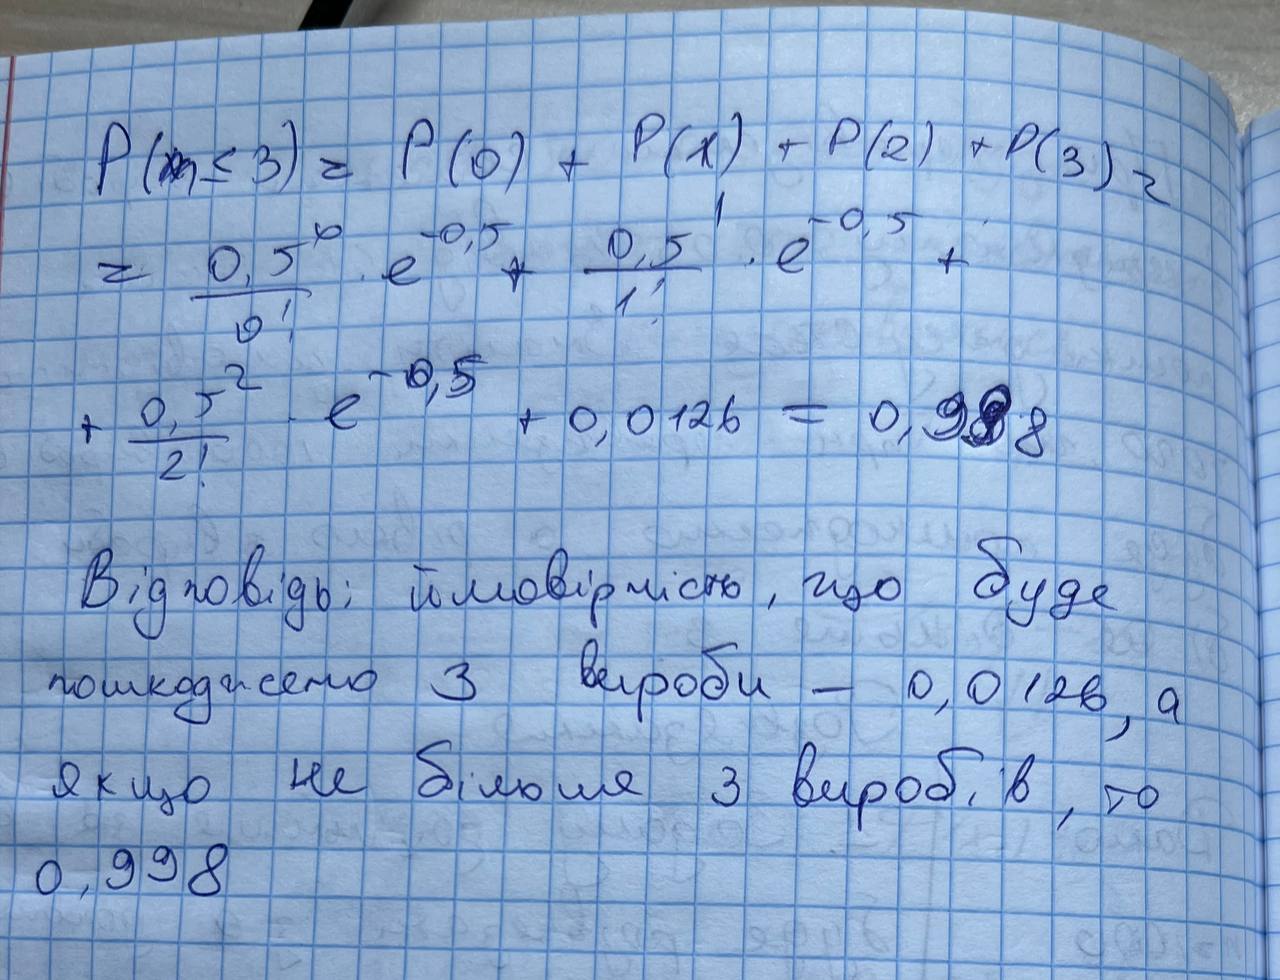 P(m ≤ 3) = P(0) + P(1) + P(2) + P(3) =
= 0,5^0 / 0! · e^-0,5 + 0,5^1 / 1! · e^-0,5 +
+ 0,5^2 / 2! · e^-0,5 + 0,0126 = 0,998
Відповідь: ймовірність, що буде
пошкоджено 3 вироби – 0,0126, а
якщо не більше 3 виробів, то
0,998